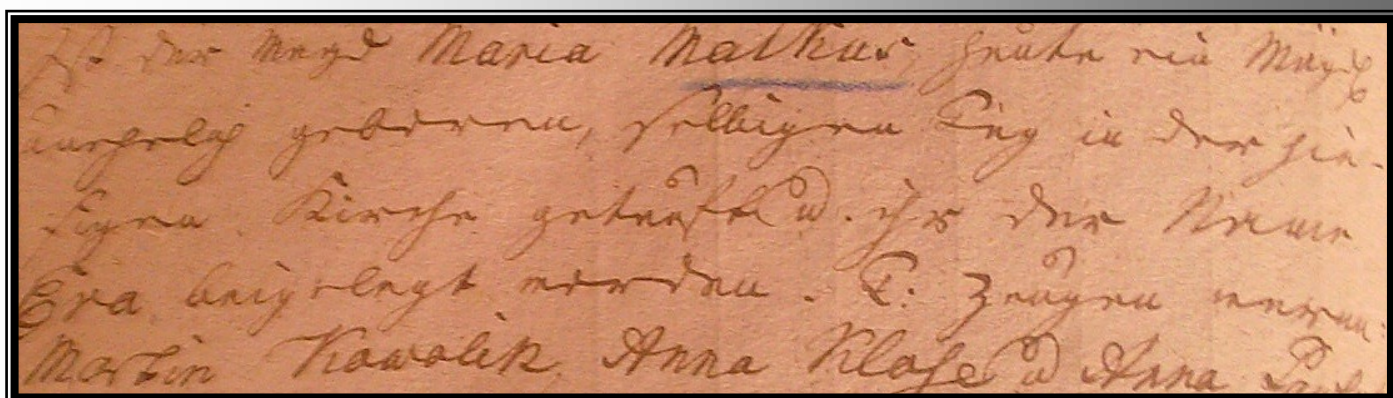 Ist der Magd Maria Malkus, heute ein Mägdl
unehelich geboren, selbigen Tag in der hie-
sigen Kirche getauft u. ihr der Name
Eva beigelegt worden. T. Zeugen waren:
Martin Kowolik, Anna Klose u Anna